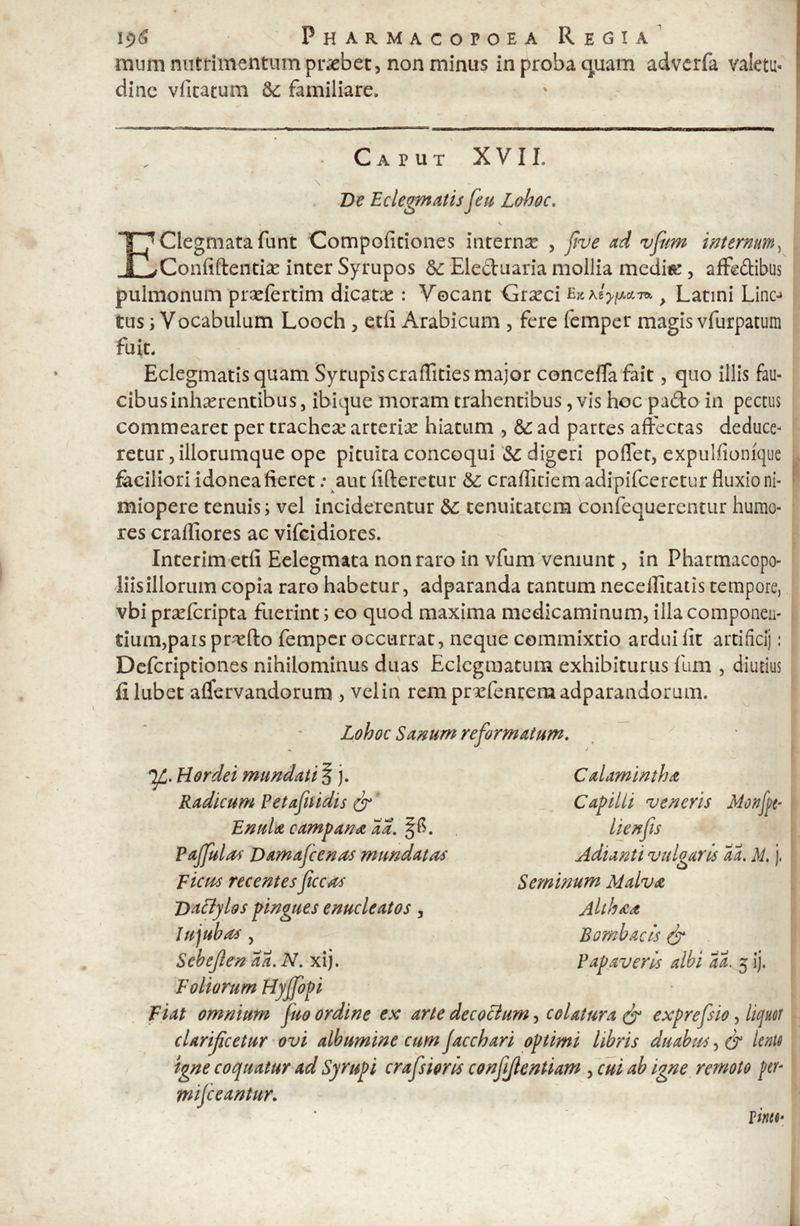 196 PHARMACOPOEA REGIA
mum nutrimentum præbet, non minus in proba quam adverſa valetu-
dine vſitatum & familiare.
CAPUT XVII.
De Eclegmatis ſeu Lohoc.
EClegmata ſunt Compoſitiones internæ , ſive ad vſum internum,
Conſiſtentiæ inter Syrupos & Electuaria mollia mediæ , affectibus
pulmonum præſertim dicatæ : Vocant Græci Εκλέγματα , Latini Linc-
tus ; Vocabulum Looch , etſi Arabicum , fere ſemper magis vſurpatum
fuit.
Eclegmatis quam Syrupis craſſities major conceſſa fait , quo illis fau-
cibus inhærentibus , ibique moram trahentibus , vis hoc pacto in pectus
commearet per tracheæ arteriæ hiatum , & ad partes affectas deduce-
retur , illorumque ope pituita concoqui & digeri poſſet, expulſionique
faciliori idonea fieret : aut ſiſteretur & craſſitiem adipiſceretur fluxio ni-
miopere tenuis ; vel inciderentur & tenuitatem conſequerentur humo-
res craſſiores ac viſcidiores.
Interim etſi Eelegmata non raro in vſum veniunt , in Pharmacopo-
liis illorum copia raro habetur , adparanda tantum neceſſitatis tempore,
vbi præſcripta fuerint ; eo quod maxima medicaminum, illa componen-
tium, pars præſto ſemper occurrat, neque commixtio ardui ſit artificij :
Deſcriptiones nihilominus duas Eclegmatum exhibiturus ſum , diutius
ſi lubet aſſervandorum , vel in rem præſentem adparandorum.
Lohoc Sanum reformatum.
♃. Hordei mundati ℥ j.
Radicum Petaſitidis &
Enulæ campanæ āā. ℥ß.
Paſſulas Damaſcenas mundatas
Ficus recentes ſiccas
Dactylos pingues enucleatos ,
Iujubas ,
Sebeſten āā. N. xij.
Foliorum Hyſſopi
Calaminthæ
Capilli veneris Monſpe-
lienſis
Adianti vulgaris āā. M. j.
Seminum Malvæ
Althææ
Bombacis &
Papaveris albi āā. ʒ ij.
Fiat omnium ſuo ordine ex arte decoctum , colatura & expreſsio , liquor
clarificetur ovi albumine cum ſacchari optimi libris duabus , & lento
igne coquatur ad Syrupi craſsioris conſiſtentiam , cui ab igne remoto per-
miſceantur.
Pineo-